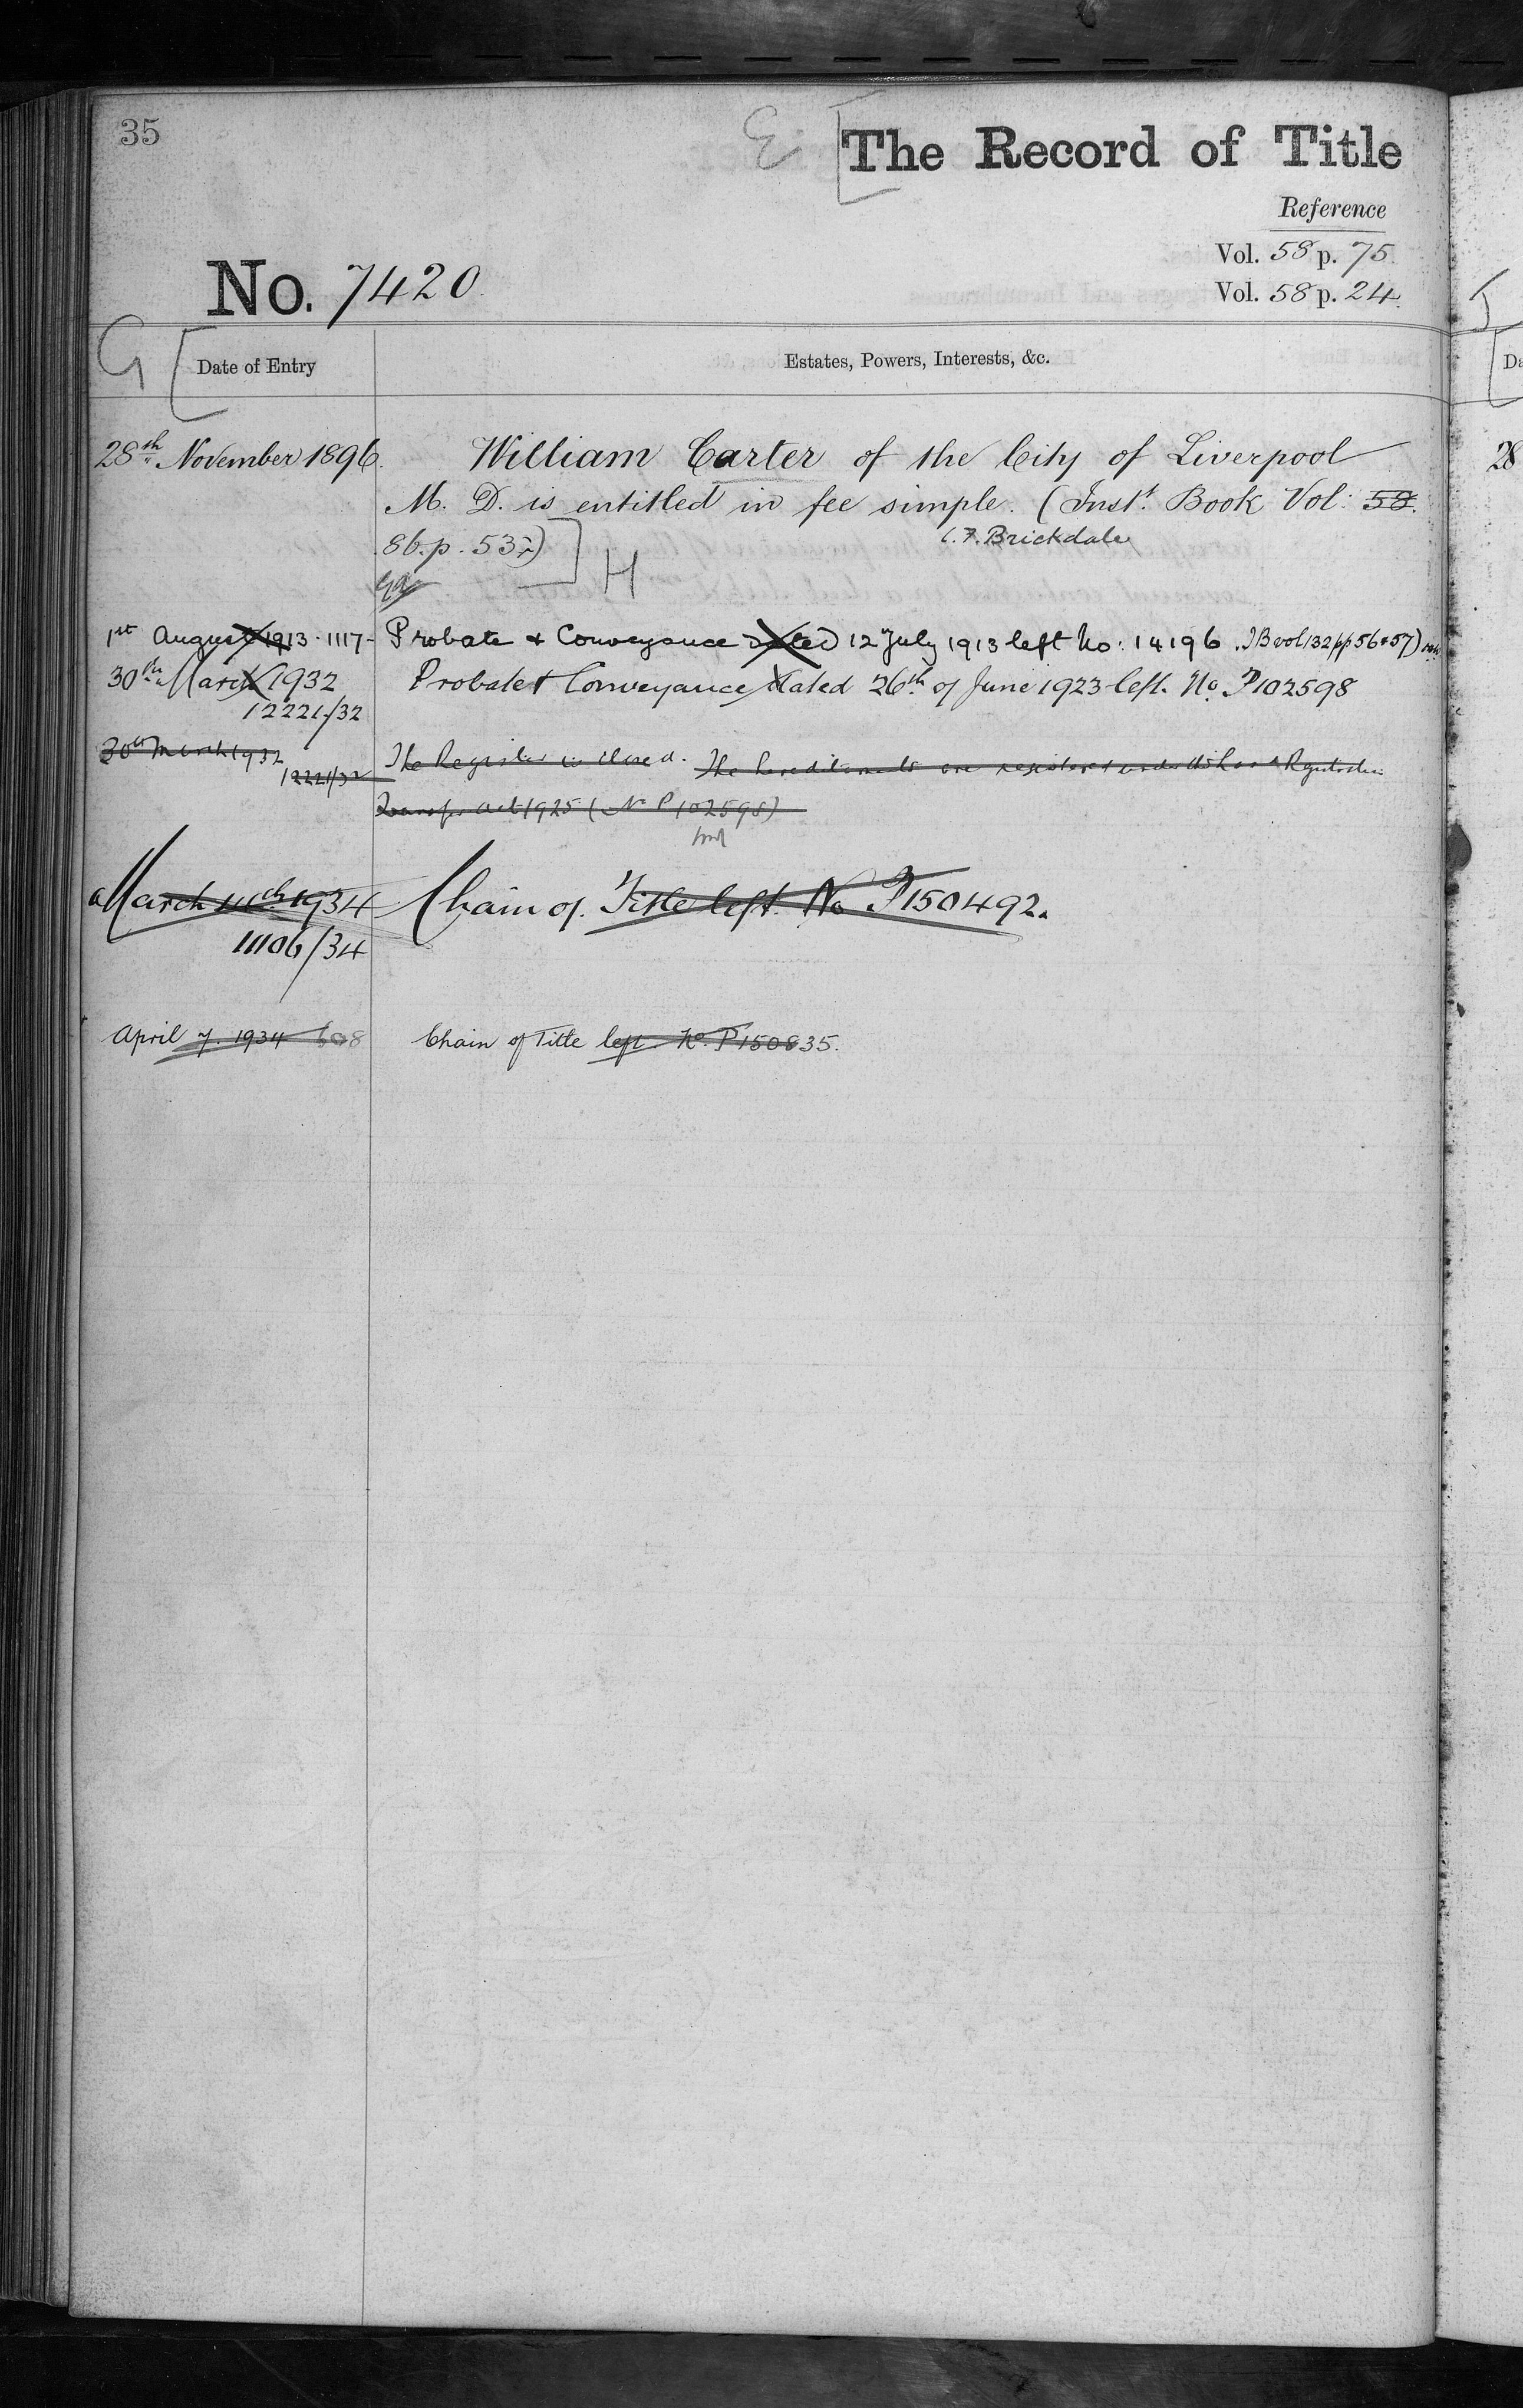 35
E [The Record of Title
Reference
Vol. 58 p. 75.
Vol. 58 p. 24.
No. 7420.
G [Date of Entry
Estates, Powers, Interests, &c.
28th November 1896. William Carter of the City of Liverpool
M. D. is entitled in fee simple. (Inst. Book Vol: 58.
86. p. 537.)] H
C.F. Brickdale
1st August 1913. 1117- Probate & Conveyance dated 12 July 1913 left No: 14196. IB vol 132 pp 56+57)
30th March 1932 Probate & Conveyance dated 26th of June 1923 left. No. P102598
12221/32
30th March 1932 The Register is closed. The hereditaments are registered under the Land Registration
12221/32
Transfer Act 1925 (No P102598)
March 14th 1934 Chain of Title left. No P150492.
11106/34
April 7. 1934 Chain of Title left. No. P150835.
J
[Da
28